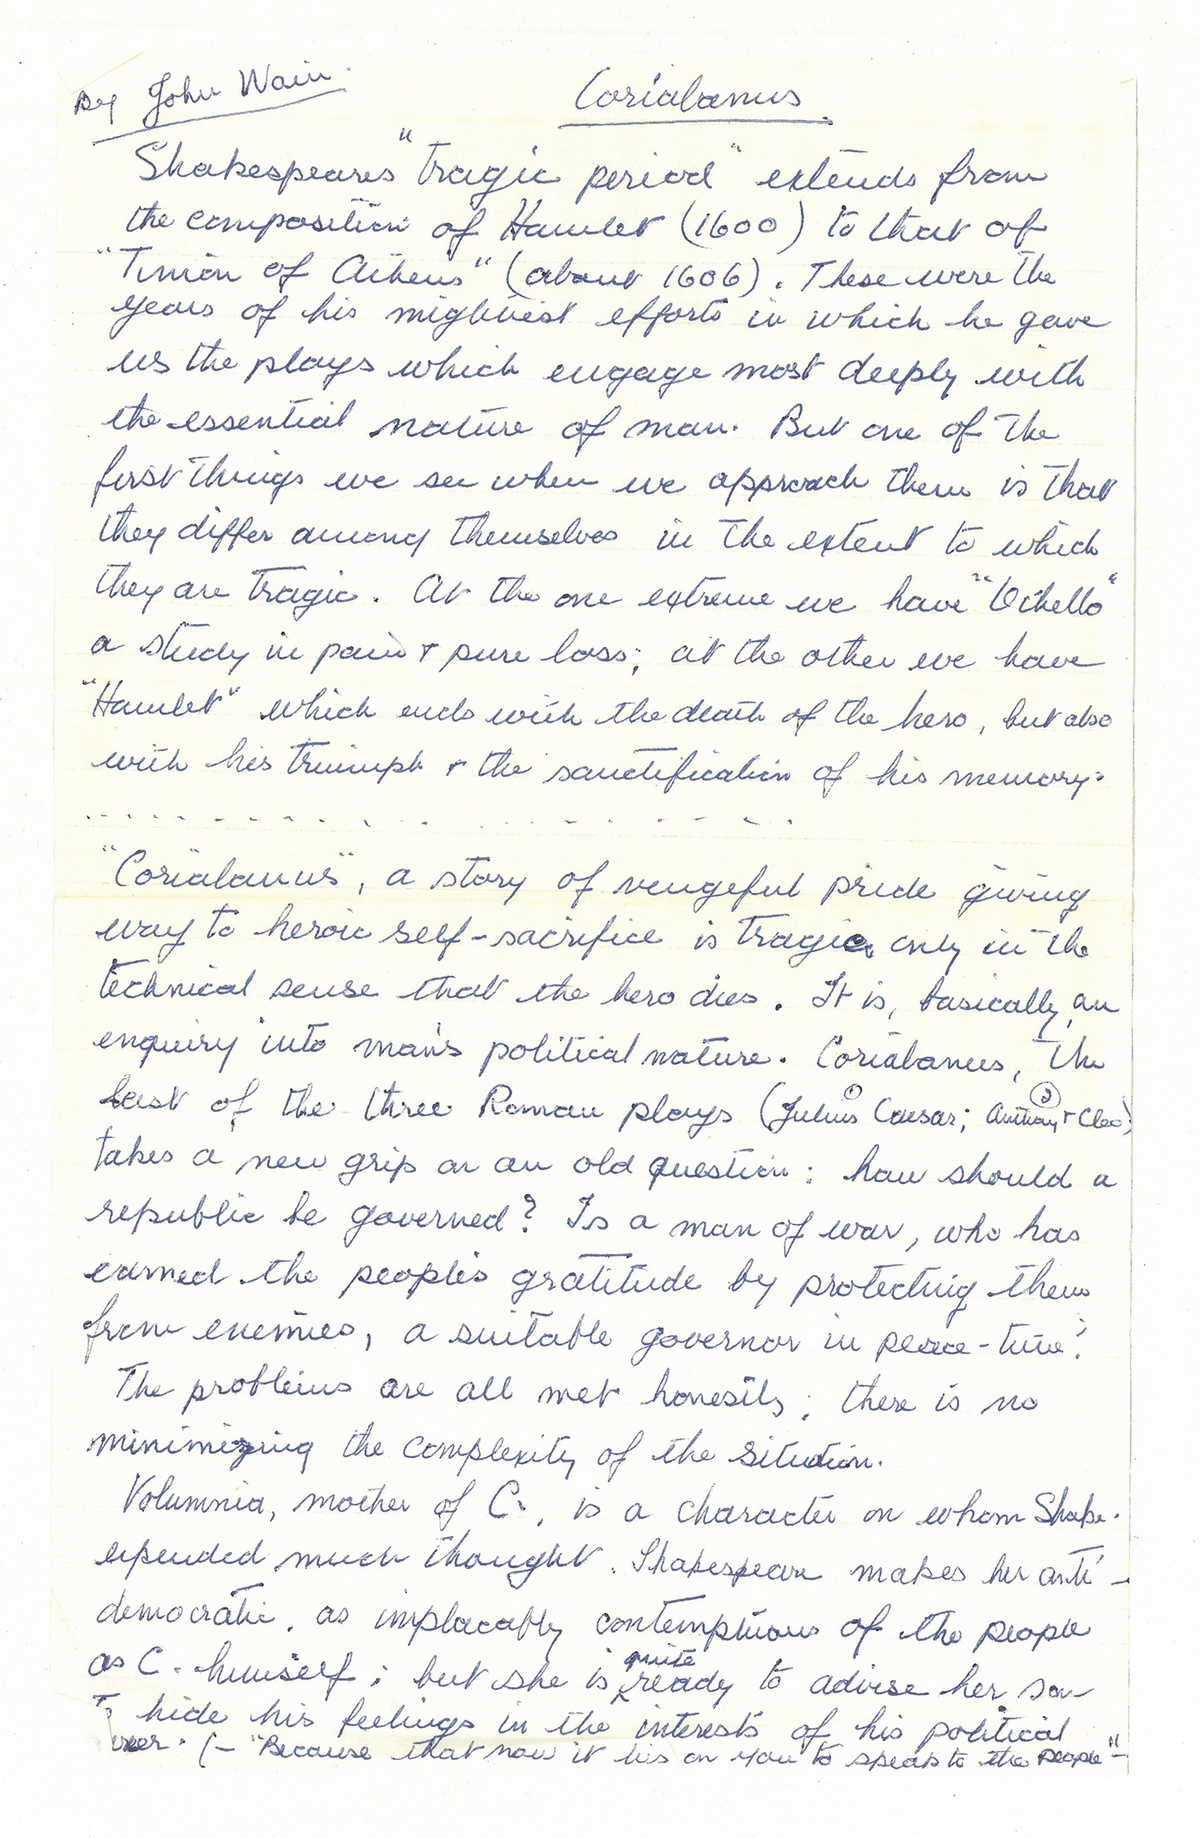 By John Wain.
Coriolanus
Shakespeares "tragic period" extends from
the composition of Hamlet (1600) to that of
"Timon of Athens" (about 1606). These were the
years of his mightiest efforts in which he gave
us the plays which engage most deeply with
the essential nature of man. But one of the
first things we see when we approach them is that
they differ among themselves in the extent to which
they are tragic. At the one extreme we have "Othello"
a study in pain & pure loss; at the other we have
"Hamlet" which ends with the death of the hero, but also
with his triumph & the sanctification of his memory.
. . . . . . . . . . . . . . . . .
"Coriolanus", a story of vengeful pride giving
way to heroic self-sacrifice is tragic only in the
technical sense that the hero dies. It is, basically, an
enquiry into man's political nature. Coriolanus, the
last of the three Roman plays (① Julius Caesar; ② Anthony & Cleo)
takes a new grip on an old question: how should a
republic be governed? Is a man of war, who has
earned the people's gratitude by protecting them
from enemies, a suitable governor in peace-time?
The problems are all met honestly; there is no
minimizing the complexity of the situation.
Volumnia, mother of C., is a character on whom Shake.
expended much thought. Shakespeare makes her anti-
democratic, as implacably contemptuous of the people
as C. himself; but she is quite ready to advise her son
to hide his feelings in the interests of his political
(- "Because that now it lies on you to speak to the people"-